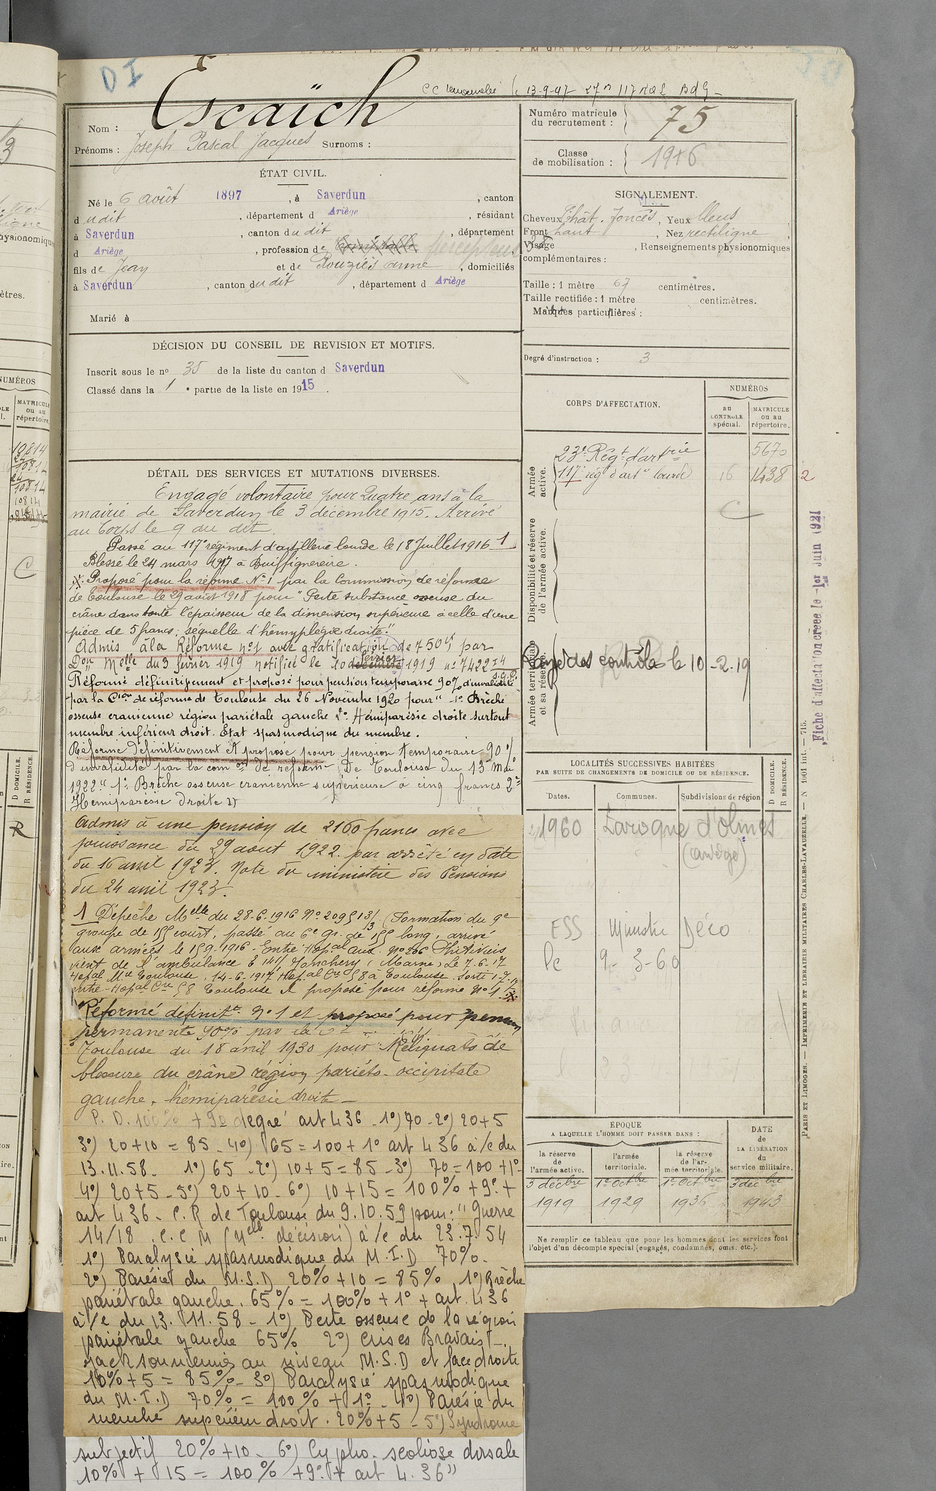 D I
Escaïch
13-9-47
Nom :
Prénoms : Joseph Pascal Jacques Surnoms :
ÉTAT CIVIL.
Né le 6 août 1897, à Saverdun, canton
d udit, département d Ariège, résidant
à Saverdun, canton du dit, département
d Ariège, profession de
fils de Jean et de Rouziès Anne, domiciliés
à Saverdun, canton du dit, département d Ariège
Marié à
DÉCISION DU CONSEIL DE REVISION ET MOTIFS.
Inscrit sous le no 35 de la liste du canton d Saverdun
Classé dans la 1e partie de la liste en 1915.
DÉTAIL DES SERVICES ET MUTATIONS DIVERSES.
Engagé volontaire pour quatre ans à la
mairie de Saverdun le 3 décembre 1915. Arrivé
au Corps le 9 du dit
Passé au 117e régiment d'artillerie lourde le 18 Juillet 1916 1
Blessé le 24 mars 1917 à
Proposé pour la réforme No 1 par la Commission de réforme
de Toulouse le 29 août 1918 pour "Perte substance osseuse du
crâne dans toute l'épaisseur de la dimension supérieure à celle d'une
pièce de 5 francs, séquelle d'hémiplégie droite."
Admis à la Réforme no 1 avec gratification de 750 par
Don Melle du 3 février 1919 notifiée le 10 février 1919 no 7422
Réformé définitivement et proposé pour pension temporaire 90% d'invalidité
par la Con de réforme de Toulouse du 26 Novembre 1920 pour "1o Brèche
osseuse cranienne région pariétale gauche 2o Hémiparésie droite surtout
membre inférieur droit. État spasmodique du membre.
Réformé définitivement et proposé pour pension temporaire 90%
d'invalidité par la com on de réforme de Toulouse du 15 mai
1922 "1o Brèche osseuse cranienne supérieure à cinq francs 2o
Hémiparésie droite"
Admis à une pension de 2160 francs avec
jouissance du 29 août 1922 par arrêté en date
du 16 avril 1923. Note du ministère des Pensions
du 24 avril 1923.
1 Dépêche Melle du 28.6.1916 No 20951 3/13 (Formation du 9e
groupe de 155 court, passé au 6e gr. de 155 long, arrivé
aux armées le 15.9.1916. Entré Hôpal aux. no 206
vient de l'ambulance à Jonchery (Marne) Le 7.6.17
Hôpal Toulouse. 14.6.1917 Hôpal Cre 58 à Toulouse. Sorti
entré Hôpal Cre 58 Toulouse et proposé pour réforme No 1
Réformé définitt no 1 et proposé pour pension
permanente 90% par la
Toulouse du 18 avril 1930 pour Reliquats de
blessure du crâne région pariéto-occipitale
gauche, hémiparésie droite_
P. D. 100% + 9e degré art 436 1o) 70 2o) 20+5
3o) 20+10 = 85 4o) 65 = 100+1o art 436 à/c du
13.11.58_ 1o) 65 2o) 10+5=85 3o) 70=100+1o
4o) 20+5 5o) 20+10 6o) 10+15 = 100% +9o+
art 436 C.R de Toulouse du 9.10.59 pour: "Guerre
14/18. C.C M (Melle décision) à/c du 23.7.54
1o) Paralysie spasmodique du M.I.D 70%.
2o) Parésie du M.S.D 20%+10 = 85%, 1o) Brèche
pariétale gauche. 65% = 100%+1o+art. 436
à/c du 13.11.58 _ 1o) Perte osseuse de la région
pariétale gauche 65% 2o) Crises Bravais-
jacksonniennes au niveau M.S.D et face droite
10%+5 = 85% 3o) Paralysie spasmodique
du M.I.D 70% = 100% + 1o 4o) Parésie du
membre supérieur droit. 20%+5 5o) Syndrome
subjectif 20%+10 _ 6o) Cypho-scoliose dorsale
10% + 15 = 100% +9o+ art 4.36"
Numéro matricule du recrutement : 75
Classe de mobilisation : 1916
SIGNALEMENT.
Cheveux Chât. foncés, Yeux bleus
Front haut, Nez rectiligne
Visage, Renseignements physionomiques
complémentaires :
Taille : 1 mètre 67 centimètres.
Taille rectifiée : 1 mètre centimètres.
Marques particulières :
Degré d'instruction : 3
CORPS D'AFFECTATION.
NUMÉROS
au CONTRÔLE spécial.
MATRICULE ou au répertoire.
Armée active.
23e Régt d'artrie 5670
117e régt d'art lourde 16 1438 2
C
Disponibilité et réserve de l'armée active.
Armée territoriale et sa réserve.
Rayé des contrôles le 10-2-19
Fiche d'affectation créée le 1er Juin 1921
LOCALITÉS SUCCESSIVES HABITÉES
PAR SUITE DE CHANGEMENTS DE DOMICILE OU DE RÉSIDENCE.
Dates. Communes. Subdivisions de région
D DOMICILE. R RÉSIDENCE.
1960 Laroque d'olmes
(ariège)
ESS Ministre Déco
le 9-3-60
ÉPOQUE
A LAQUELLE L'HOMME DOIT PASSER DANS :
la réserve de l'armée active.
l'armée territoriale.
la réserve de l'armée territoriale.
DATE de LA LIBÉRATION du service militaire.
3 décbre 1919
1er Octbre 1929
1er Octbre 1936
3 décbre 1943
Ne remplir ce tableau que pour les hommes dont les services font
l'objet d'un décompte spécial (engagés, condamnés, omis, etc.).
PARIS ET LIMOGES. — IMPRIMERIE ET LIBRAIRIE MILITAIRES CHARLES-LAVAUZELLE.